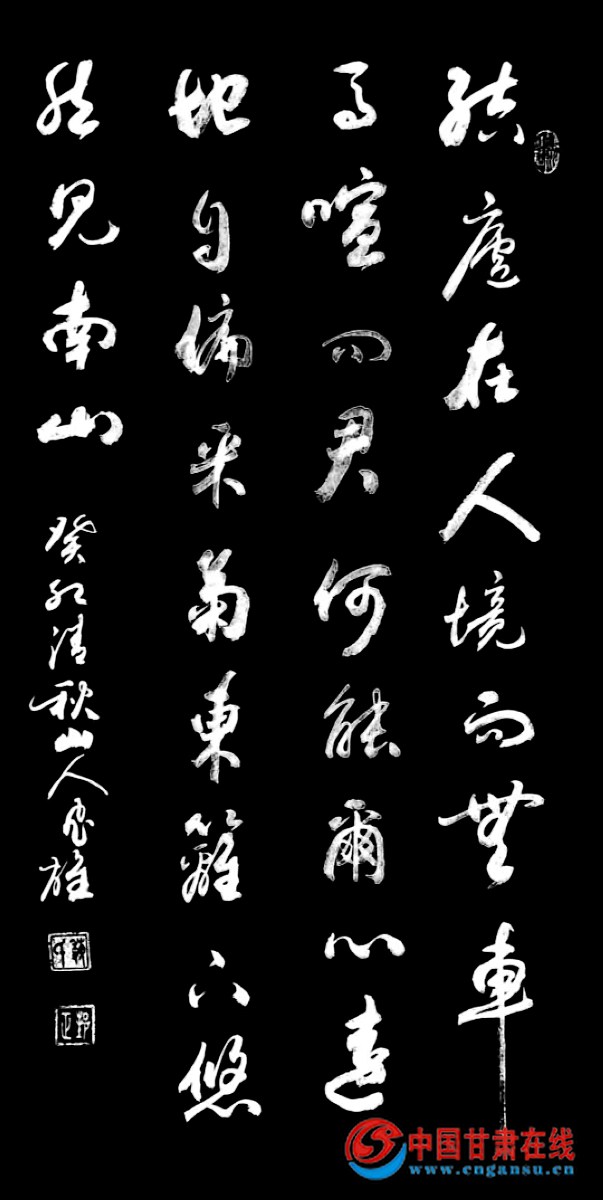 結廬在人境而無車
馬喧問君何能爾心遠
地自偏采菊東籬下悠
然見南山
癸卯清秋山人雄
中国甘肃在线
www.cngansu.cn